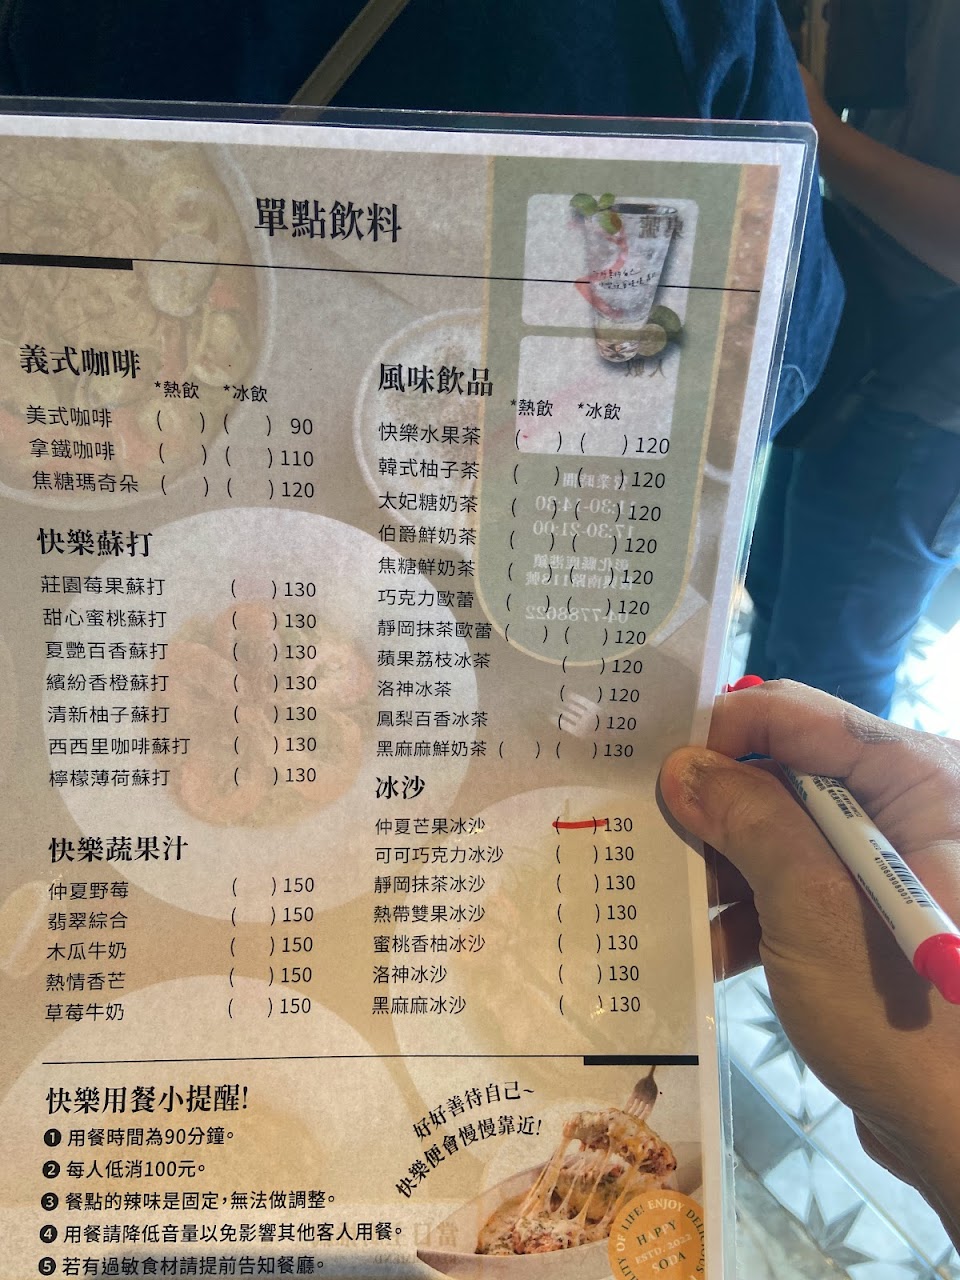 單點飲料
義式咖啡
*熱飲 *冰飲
美式咖啡 ( ) ( ) 90
拿鐵咖啡 ( ) ( ) 110
焦糖瑪奇朵 ( ) ( ) 120
快樂蘇打
莊園莓果蘇打 ( ) 130
甜心蜜桃蘇打 ( ) 130
夏艷百香蘇打 ( ) 130
繽紛香橙蘇打 ( ) 130
清新柚子蘇打 ( ) 130
西西里咖啡蘇打 ( ) 130
檸檬薄荷蘇打 ( ) 130
快樂蔬果汁
仲夏野莓 ( ) 150
翡翠綜合 ( ) 150
木瓜牛奶 ( ) 150
熱情香芒 ( ) 150
草莓牛奶 ( ) 150
風味飲品
*熱飲 *冰飲
快樂水果茶 ( ) ( ) 120
韓式柚子茶 ( ) ( ) 120
太妃糖奶茶 ( ) ( ) 120
伯爵鮮奶茶 ( ) ( ) 120
焦糖鮮奶茶 ( ) ( ) 120
巧克力歐蕾 ( ) ( ) 120
靜岡抹茶歐蕾 ( ) ( ) 120
蘋果荔枝冰茶 ( ) 120
洛神冰茶 ( ) 120
鳳梨百香冰茶 ( ) 120
黑麻麻鮮奶茶 ( ) ( ) 130
冰沙
仲夏芒果冰沙 ( ) 130
可可巧克力冰沙 ( ) 130
靜岡抹茶冰沙 ( ) 130
熱帶雙果冰沙 ( ) 130
蜜桃香柚冰沙 ( ) 130
洛神冰沙 ( ) 130
黑麻麻冰沙 ( ) 130
快樂用餐小提醒!
❶ 用餐時間為90分鐘。
❷ 每人低消100元。
❸ 餐點的辣味是固定，無法做調整。
❹ 用餐請降低音量以免影響其他客人用餐。
❺ 若有過敏食材請提前告知餐廳。
好好善待自己~
快樂便會慢慢靠近!
OF LIFE! ENJOY
HAPPY
ESTD. 2022
SODA
4710609080076